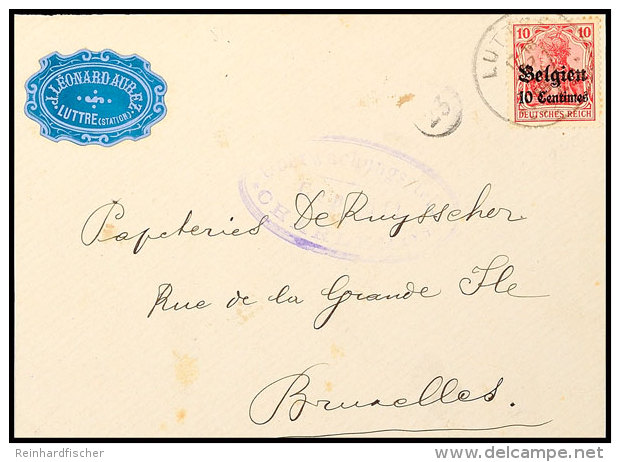 J. LÉONARD-AUBRY.
LUTTRE (STATION)
LUTTRE
10 10
Belgien
10 Centimes
DEUTSCHES REICH
Papeteries De Ruysscher
Rue de la Grande Ile
Bruxelles.
Reinhardfischer
www.delcampe.net